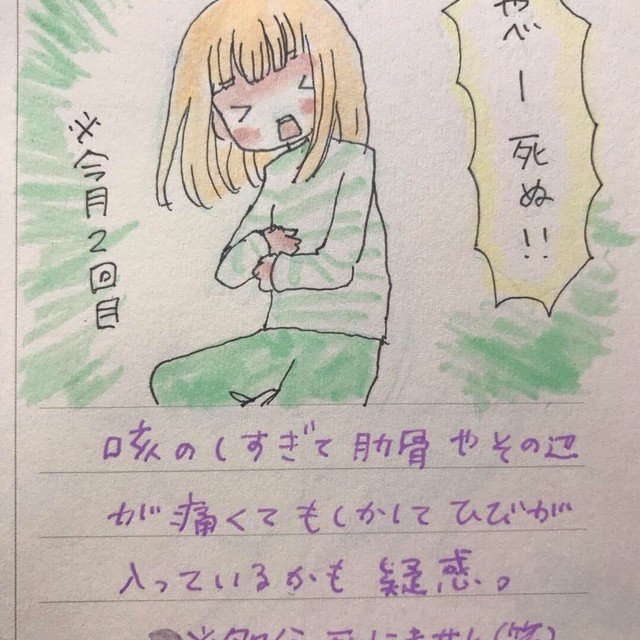 やべー死ぬ!!
※今月2回目
咳のしすぎて肋骨やその辺
が痛くてもしかしてひびが
入っているかも疑惑。